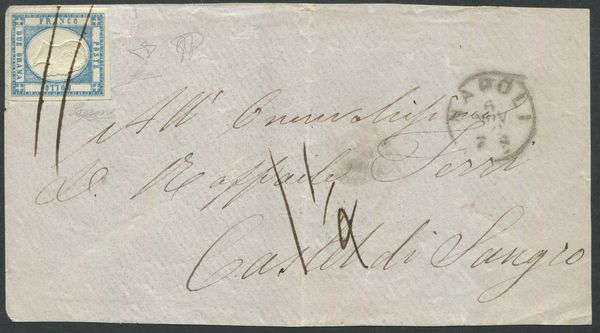 FRANCO
POSTE
DUE GRANA
BOLLO
NAPOLI
6
All' Onorevolissimo
Raffaele
Castel di Sangro